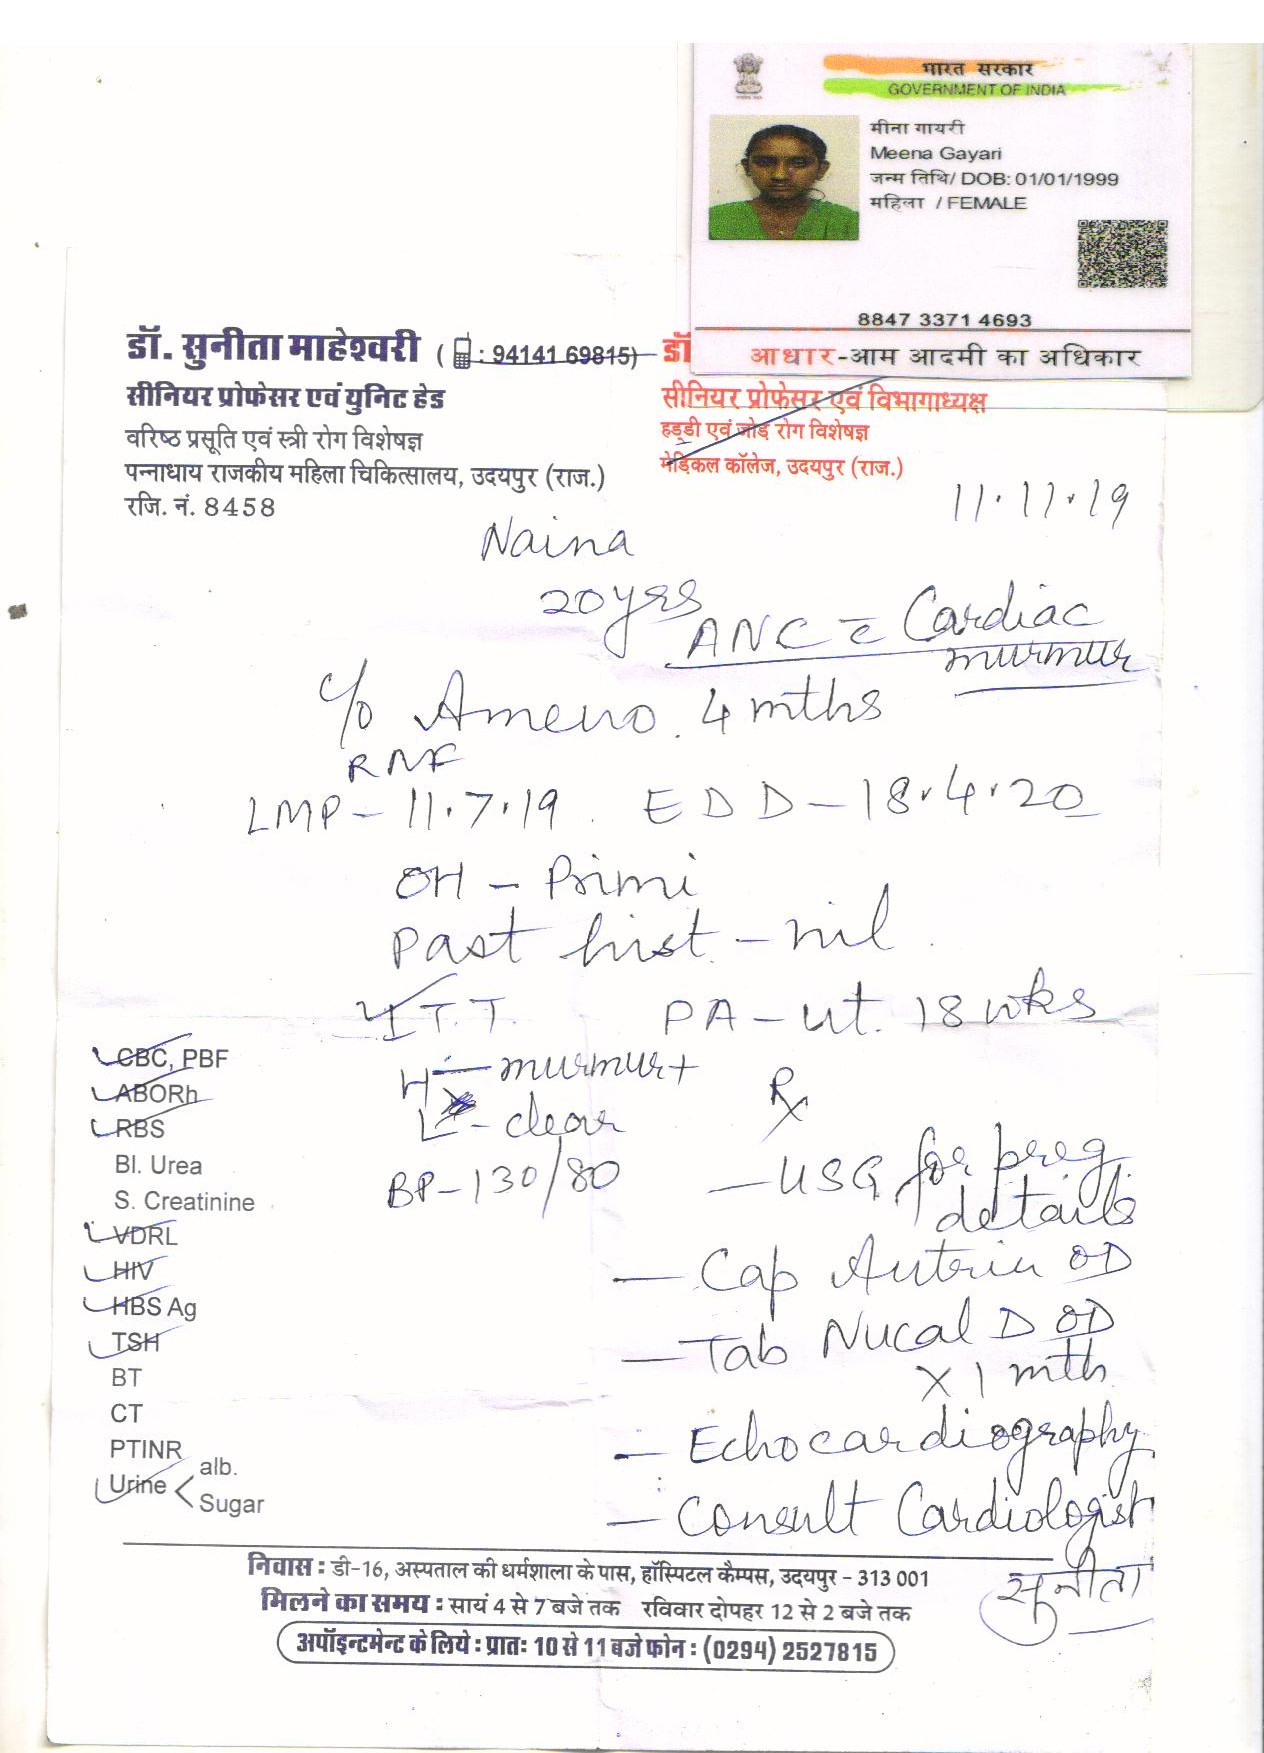 भारत सरकार
GOVERNMENT OF INDIA
मीना गायरी
Meena Gayari
जन्म तिथि/ DOB: 01/01/1999
महिला / FEMALE
8847 3371 4693
आधार-आम आदमी का अधिकार
डॉ. सुनीता माहेश्वरी ( : 94141 69815)
सीनियर प्रोफेसर एवं युनिट हेड
वरिष्ठ प्रसूति एवं स्त्री रोग विशेषज्ञ
पन्नाधाय राजकीय महिला चिकित्सालय, उदयपुर (राज.)
रजि. नं. 8458
डॉ
सीनियर प्रोफेसर एवं विभागाध्यक्ष
हड्डी एवं जोड़ रोग विशेषज्ञ
मेडिकल कॉलेज, उदयपुर (राज.)
11.11.19
Naina
20yrs
ANC c Cardiac
murmur
c/o Ameno. 4 mths
RMF
LMP- 11.7.19. EDD-18.4.20
OH - Primi
Past hist. - nil.
T.T. PA - ut. 18 wks
H - murmur+
L - clear
BP-130/80
CBC, PBF
ABORh
RBS
Bl. Urea
S. Creatinine
VDRL
HIV
HBS Ag
TSH
BT
CT
PTINR
Urine < alb.
Sugar
Rx
- USG for preg
details
- Cap OD
- Tab Nucal D OD
x 1 mth
- Echocardiography
- Consult Cardiologist
सुनीता
निवास : डी-16, अस्पताल की धर्मशाला के पास, हॉस्पिटल कैम्पस, उदयपुर - 313 001
मिलने का समय : सायं 4 से 7 बजे तक रविवार दोपहर 12 से 2 बजे तक
अपॉइन्टमेन्ट के लिये : प्रातः 10 से 11 बजे फोन : (0294) 2527815